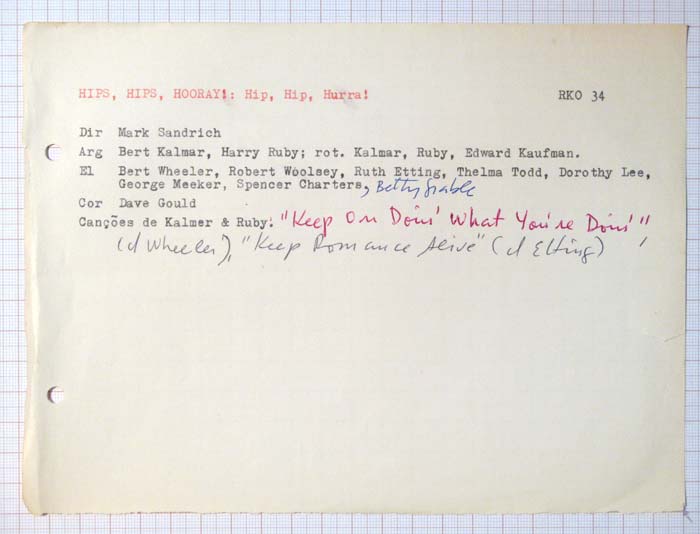 HIPS, HIPS, HOORAY!: Hip, Hip, Hurra! RKO 34
Dir Mark Sandrich
Arg Bert Kalmar, Harry Ruby; rot. Kalmar, Ruby, Edward Kaufman.
El Bert Wheeler, Robert Woolsey, Ruth Etting, Thelma Todd, Dorothy Lee,
George Meeker, Spencer Charters, Betty Grable
Cor Dave Gould
Canções de Kalmer & Ruby: "Keep On Doin' What You're Doin'",
(d Wheeler), "Keep Romance Alive" (d Etting)